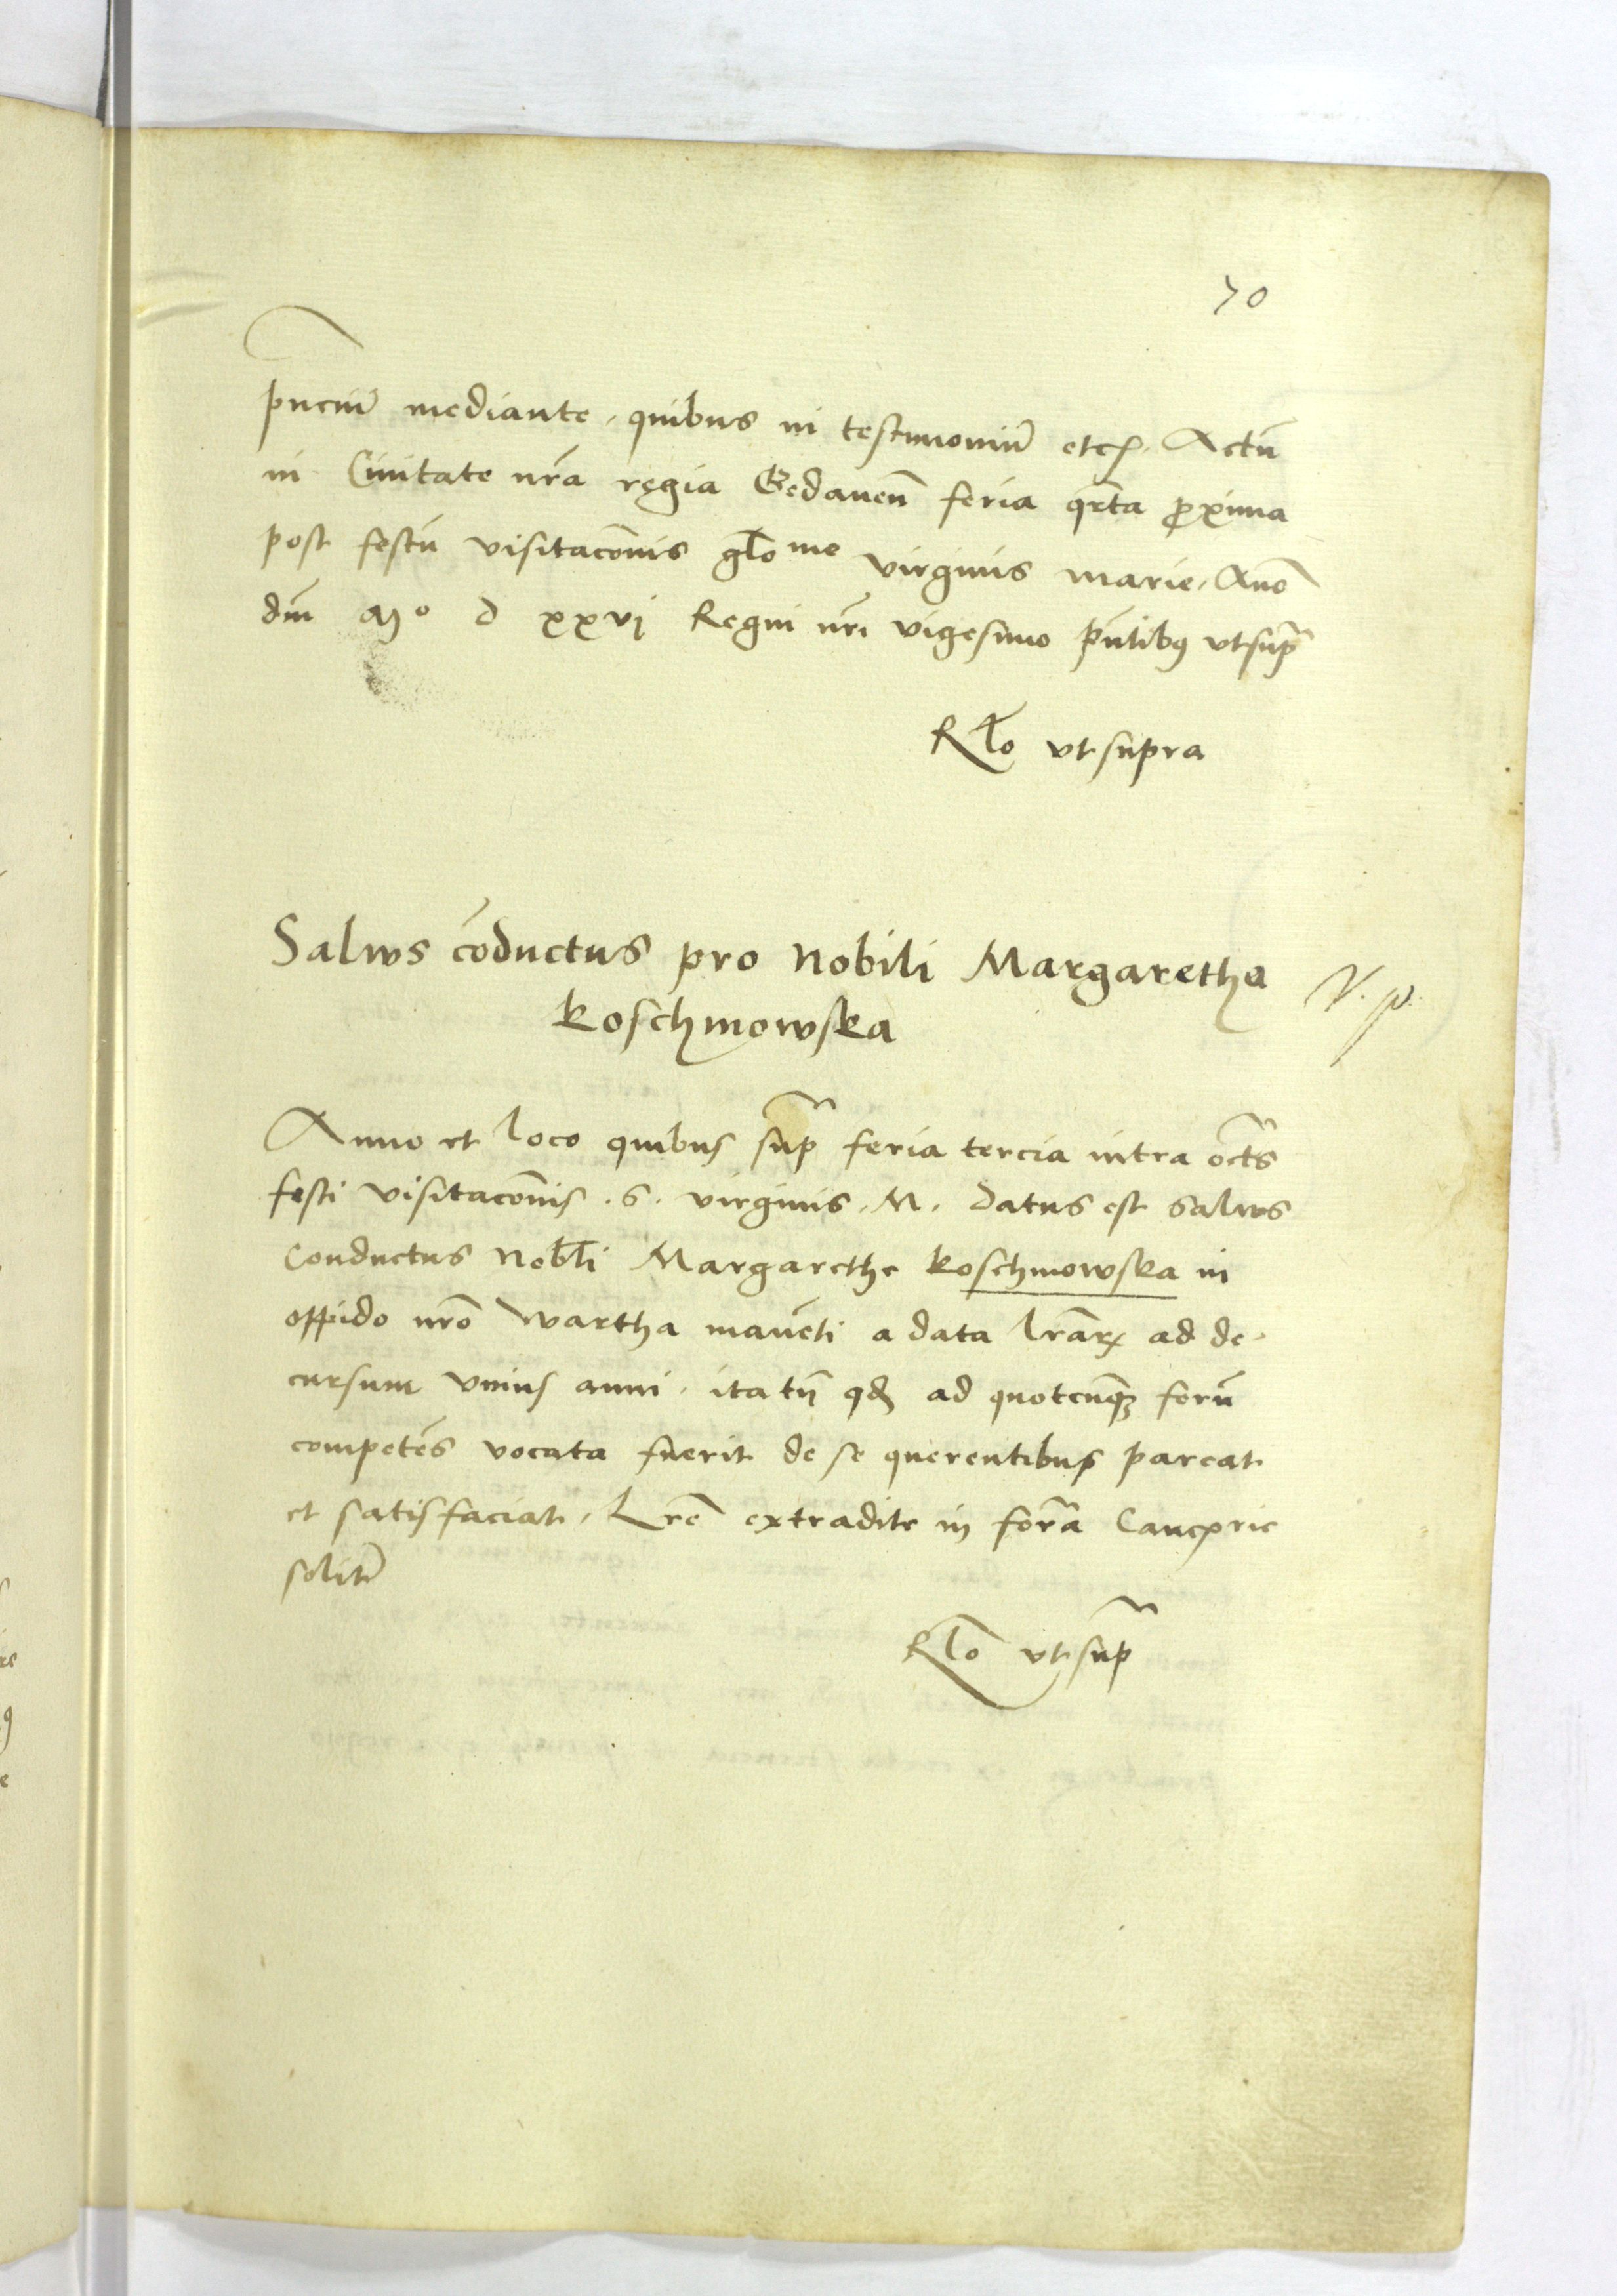 70
pnciũ mediante, quibus in testimoniũ etcꝭ. Actũ
in Ciuitate nrã regia Gedaneñ feria qrta ꝓxima
post festũ visitacõnis gloᵐᵉ virginis marie, Anõ
dñi Mº d xxvj Regni nrĩ vigesimo pñtibꝰ vtsupᵃ
Rłõ vt supra
Salws cõductus pro Nobili Margaretha
Koschmowska
Anno et loco quibus supᵃ feria tercia intra octãs
festi visitacõnis .S. virginis .M. datus est Salws
Conductus Nobłi Margarethe Koschmowska in
oppido nrõ Wartha manẽti a data lrãrꝝ ad de-
cursum vnius anni, ita tñ qđ ad quotcũqꝫ forũ
competẽs vocata fuerit de se querentibus pareat
et satisfaciat, Lrẽ extradite in forã Cancꝝrie
solitᵉ
Rłõ vt supᵃ